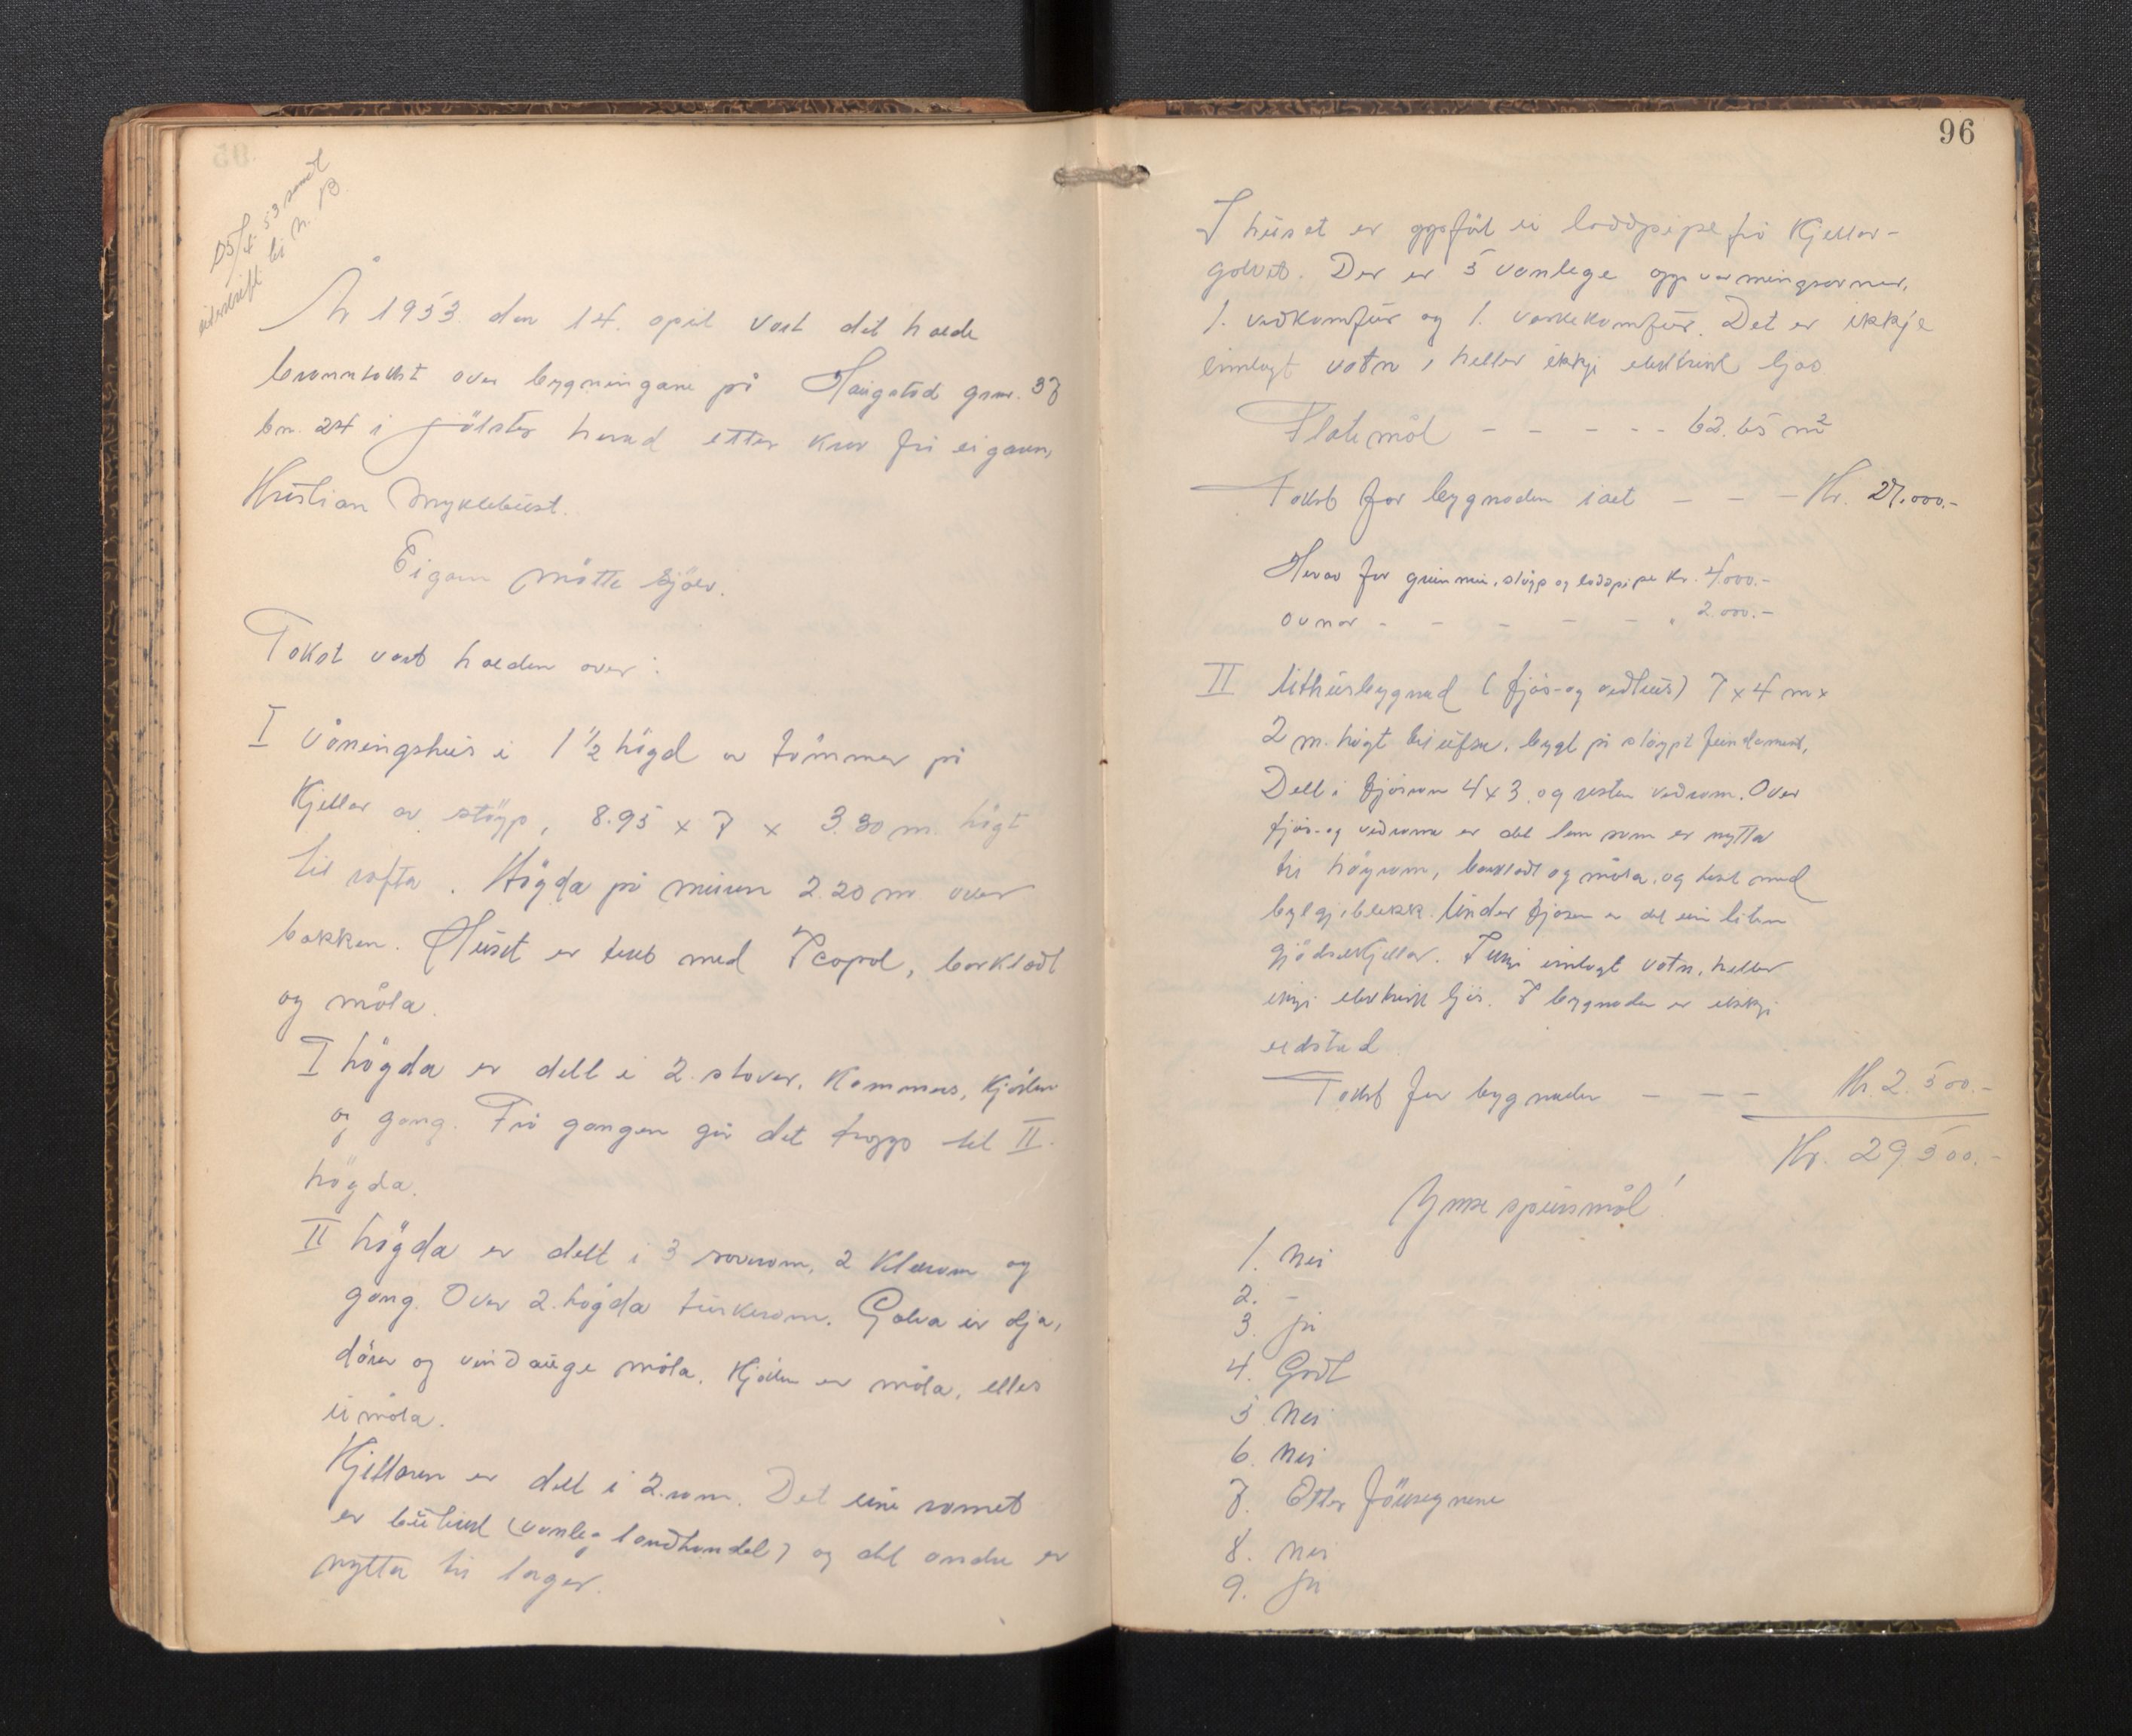 25/4-53 sendt
utskrift til N. B.
År 1953 den 14. april vart det halde
branntakst over bygningane på Haugstad gnr. 37
bn. 24 i Jölster herad etter krav frå eigaren,
Kristian Myklebust.
Eigaren mötte sjölv.
Takst vart halden over:
I Våningshus i 1 ½ högd av tömmer på
Kjellar av stöyp, 8.95 x 7 x 3.30 m. högt
til rafta. Högda på muren 2.20 m over
bakken. Huset er tekt med Icopal, bordkledt
og måla.
I högda er delt i 2. stover, Kammers, Kjöken
og gang. Frå gangen går det trapp til II.
högda.
II högda er delt i 3 soverom, 2 Klerom og
gang. Over 2. högda turkerom. Golva er olja,
dörer og vindauge måla. Kjöken er måla, elles
umåla.
Kjellaren er delt i 2. rom. Det eine romet
er butikk (vanleg landhandel) og det andre er
nytta til lager.
96
I huset er oppfört ei loddpipe frå Kjellar-
golvet. Der er 5 vanlege oppvarmingsovnar,
1. vedkomfur og 1. vaskekomfur. Det er ikkje
innlagt vatn, heller ikkje elektrisk ljos
Flatemål - - - - - 62.65 m²
Takst for bygnaden i alt - - - Kr. 27.000.-
Herav for grunnmur, stöyp og loddpipe kr. 4.000.-
ovnar - - - - - " 2.000.-
II Uthusbygnad (fjös- og vedhus) 7 x 4 m x
2 m. högt til ufsa, bygt på stöypt fundament,
Delt i fjösrom 4 x 3. og resten vedrom. Over
fjös- og vedroma er det lem som er nytta
til höyrom, bordkledt og måla, og tekt med
bylgjeblekk. Under fjösen er det ein liten
gjödselkjellar. Ikkje innlagt vatn, heller
ikkje elektrisk ljos. I bygnaden er ikkje
eldstad.
Takst for bygnaden - - - Kr. 2.500.-
Kr. 29.500.-
Ymse spursmål!
1. Nei
2. -
3. Ja
4. Godt
5. Nei
6. Nei
7. Etter föresegnene
8. Nei
9. Ja